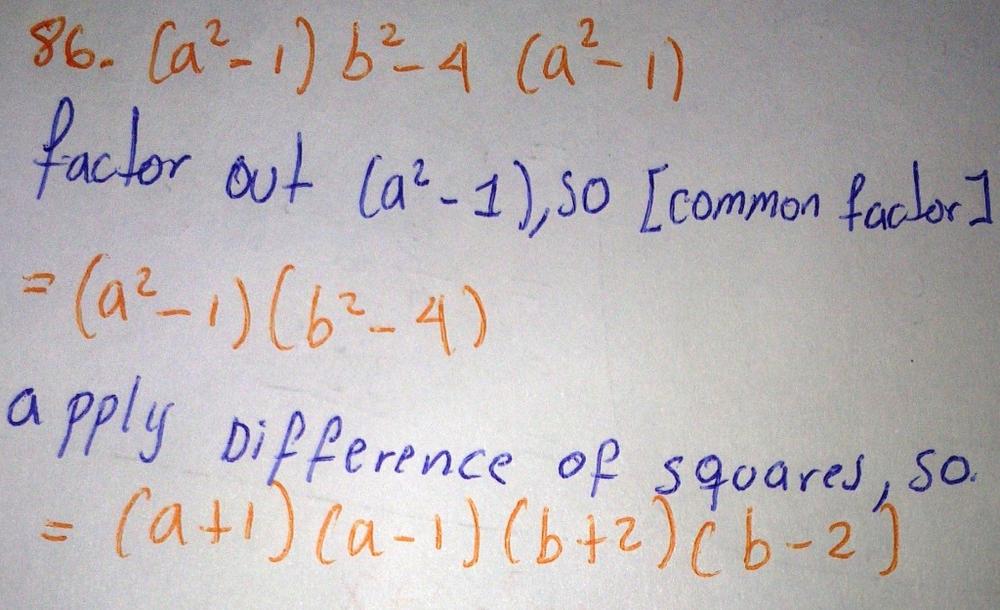 86. (a²-1) b²-4 (a²-1)
factor out (a²-1), so [common factor]
= (a²-1)(b²-4)
apply Difference of squares, so.
= (a+1)(a-1)(b+2)(b-2)